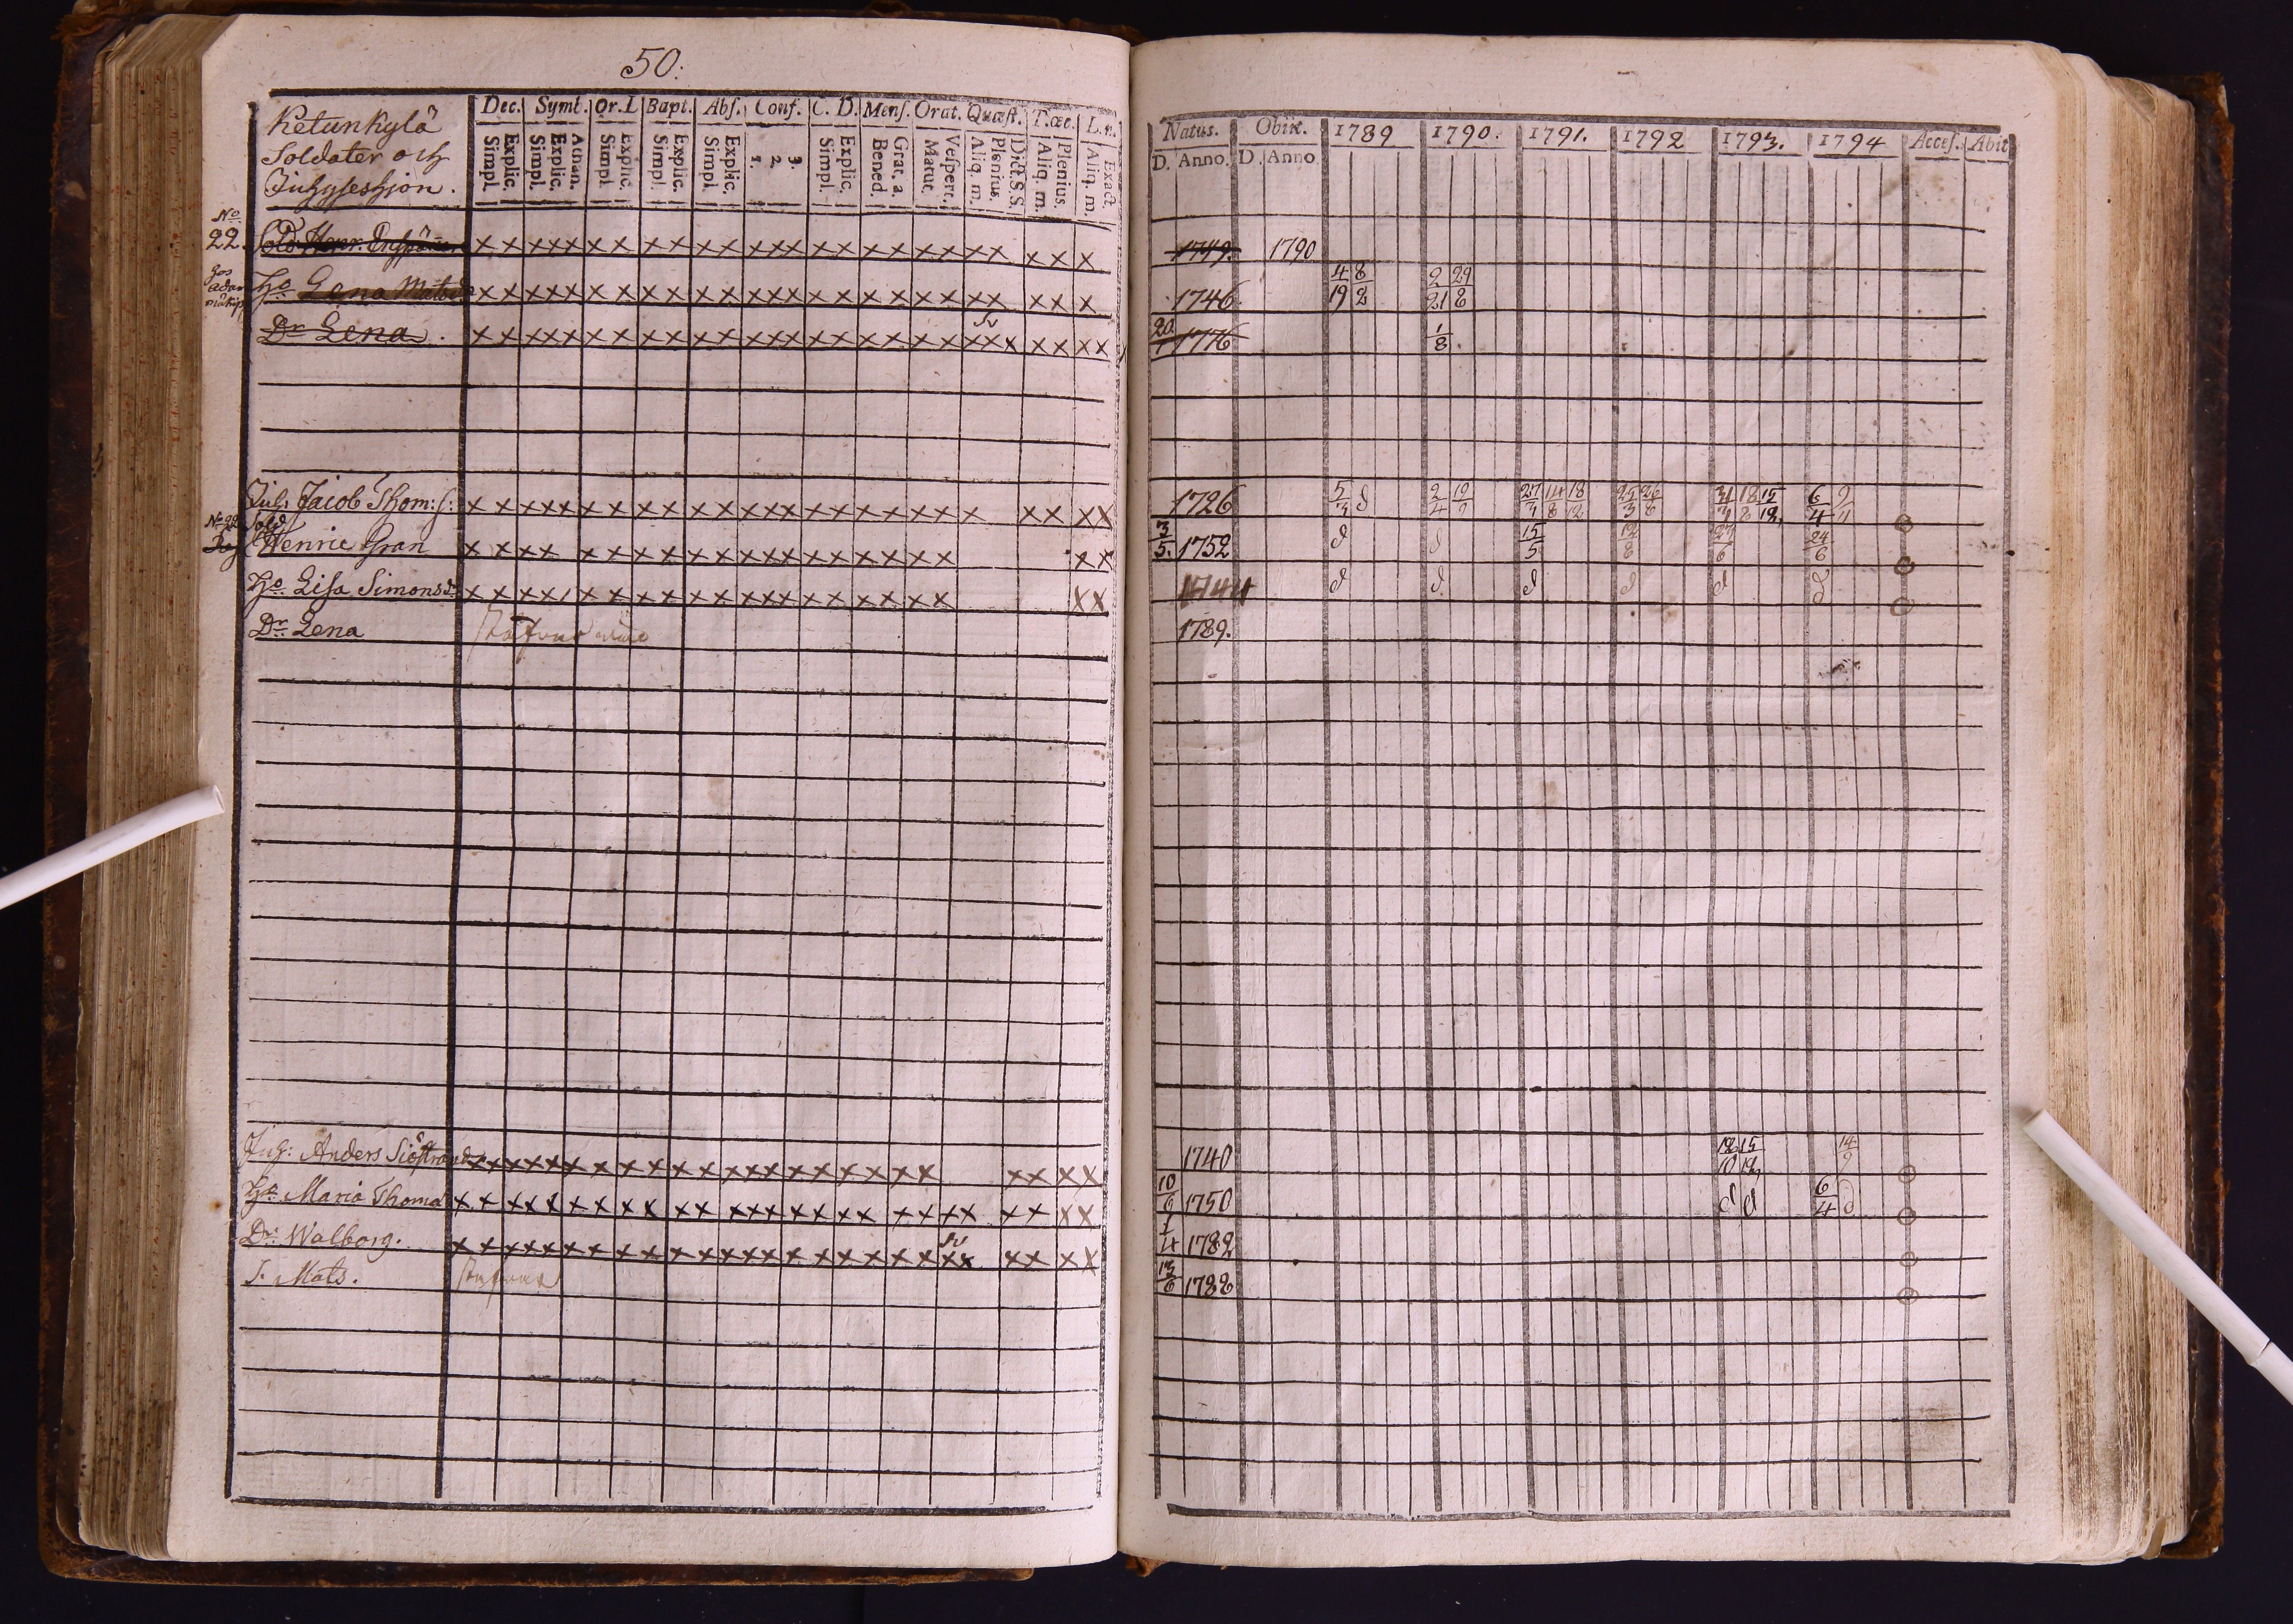 50:
Ketunkylä
Soldater och
Inhyseshjon.
Dec. Symb. Or. D. Bapt. Abs. Conf. C. D. Mens. Orat. Quæst. T. œc. L. n.
Explic. Simpl. Athan. Explic. Simpl. Explic. Simpl. Explic. Simpl. Explic. Simpl. 3. 2. 1. Explic. Simpl. Grat. a. Bened. Vespert. Matut. Dict. S. S. Plenius. Aliq. m. Plenius. Aliq. m. Exact Aliq. m.
Natus. Obiit. 1789 1790. 1791. 1792 1793. 1794 Acces. Abit
D. Anno. D. Anno
No 22. Sold. Henr. x x x x x x x x x x x x x x x x x x x x x x x x x x 1749. 1790
Ho Lena Matsd x x x x x x x x x x x x x x x x x x x x x x x x x x 1746. 4/19 8/2 2/21 29/8
Dr Lena. x x x x x x x x x x x x x x x x x x x x x x x x x x x x 1776 1/8
Inh: Jacob Thom: s: x x x x x x x x x x x x x x x x x x x x x x x x x x 1726 5/3 d 2/4 19/9 27/3 14/8 18/12 25/3 26/8 31/3 18/8 15/12 6/4
No 22 Sold Henric Gran x x x x x x x x x x x x x x x x x x x x x x 3/5. 1752 d d 15/5 19/8 27/6 24/6
Ho Lisa Simonsd. x x x x x x x x x x x x x x x x x x x x x x 1744 d d d d d d
Dr Lena 1789.
Inh: Anders Siöstrand x x x x x x x x x x x x x x x x x x x x x x x x 1740 12/10 15/12 14/9
Ho Maria Thomæd x x x x x x x x x x x x x x x x x x x x x x x x x x 10/9 1750 d d 6/4 d
Dr Walborg. x x x x x x x x x x x x x x x x x x x x x x x x x x 1/4 1782
S. Mats. 13/6 1788